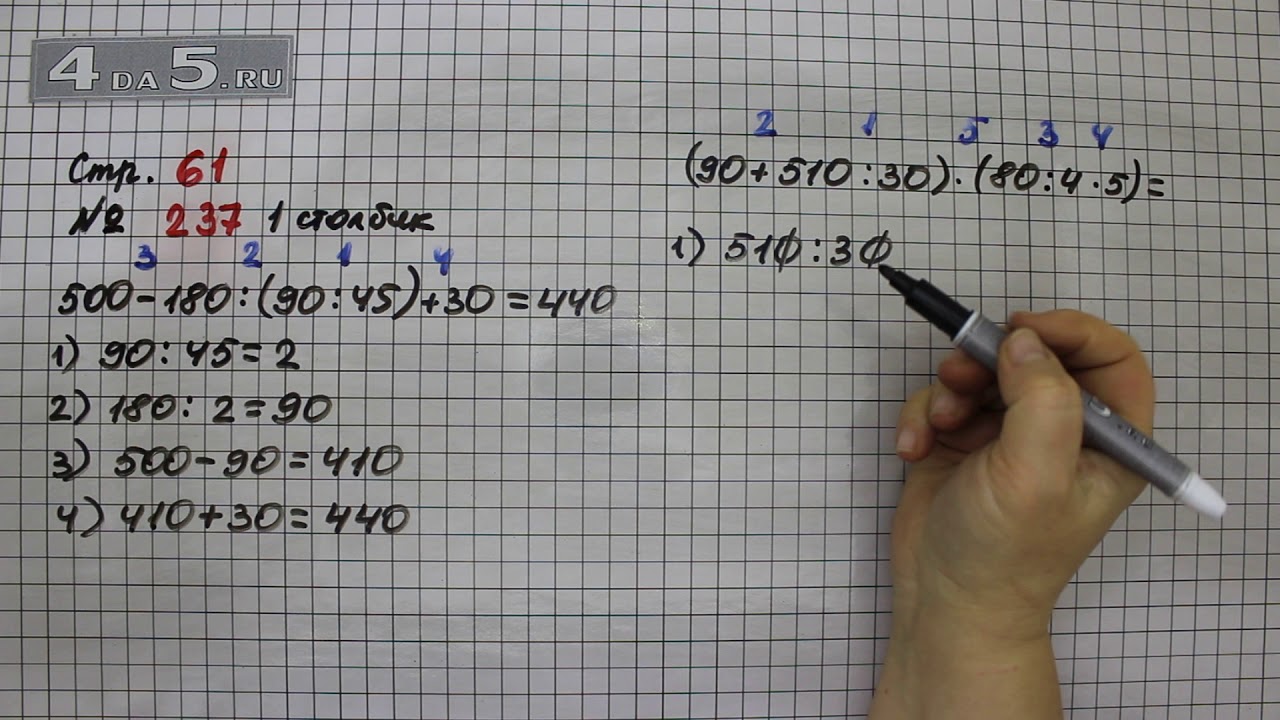 4DA5.RU
Стр. 61
№ 237 1 столбик
3 2 1 4
500-180:(90:45)+30=440
1) 90:45=2
2) 180:2=90
3) 500-90=410
4) 410+30=440
2 1 5 3 4
(90+510:30)·(80:4·5)=
1) 510:30